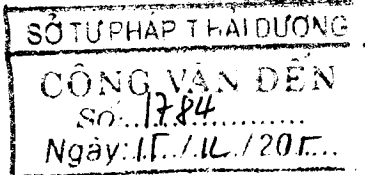 SỞ TƯ PHÁP THÁI DƯƠNG
CÔNG VĂN ĐẾN
Số: 1784
Ngày: